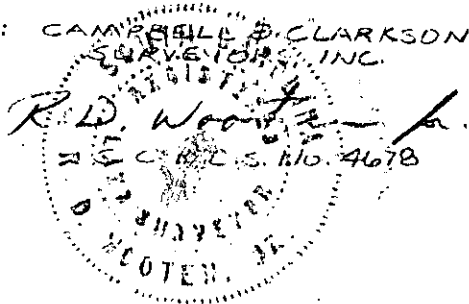 : CAMPBELL & CLARKSON
SURVEYORS, INC.
R. D. Wooten Jr.
S.C.R.L.S. NO. 4678
REGISTERED
SURVEYOR
R. D. WOOTEN, JR.